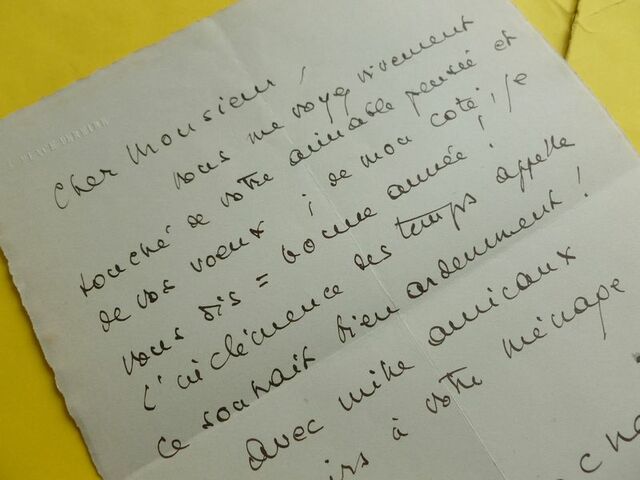 Cher Monsieur,
vous me voyez vivement
touché de votre aimable pensée et
de vos voeux ; de mon coté, je
vous dis = bonne année !
L'inclémence des temps appelle
ce souhait bien ardemment !
avec mille amicaux
irs à votre ménage